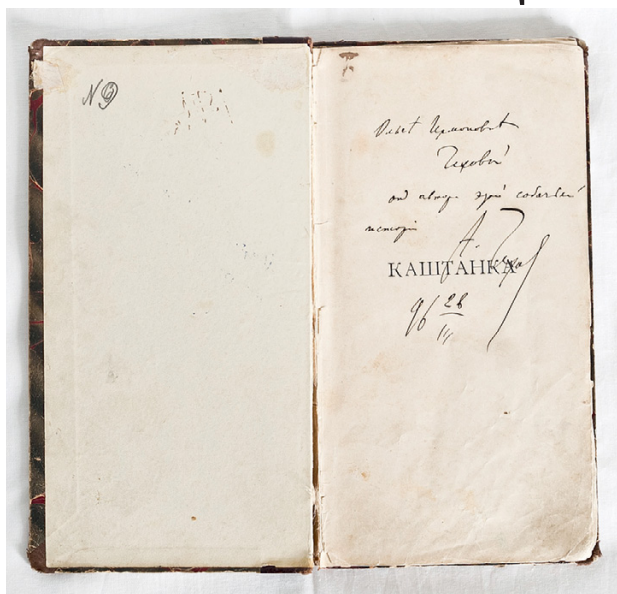 N 9
Ольгѣ Германовнѣ
Чеховой
от автора этой собачьей
исторіи
А. Чехов
КАШТАНКА
96 28
III